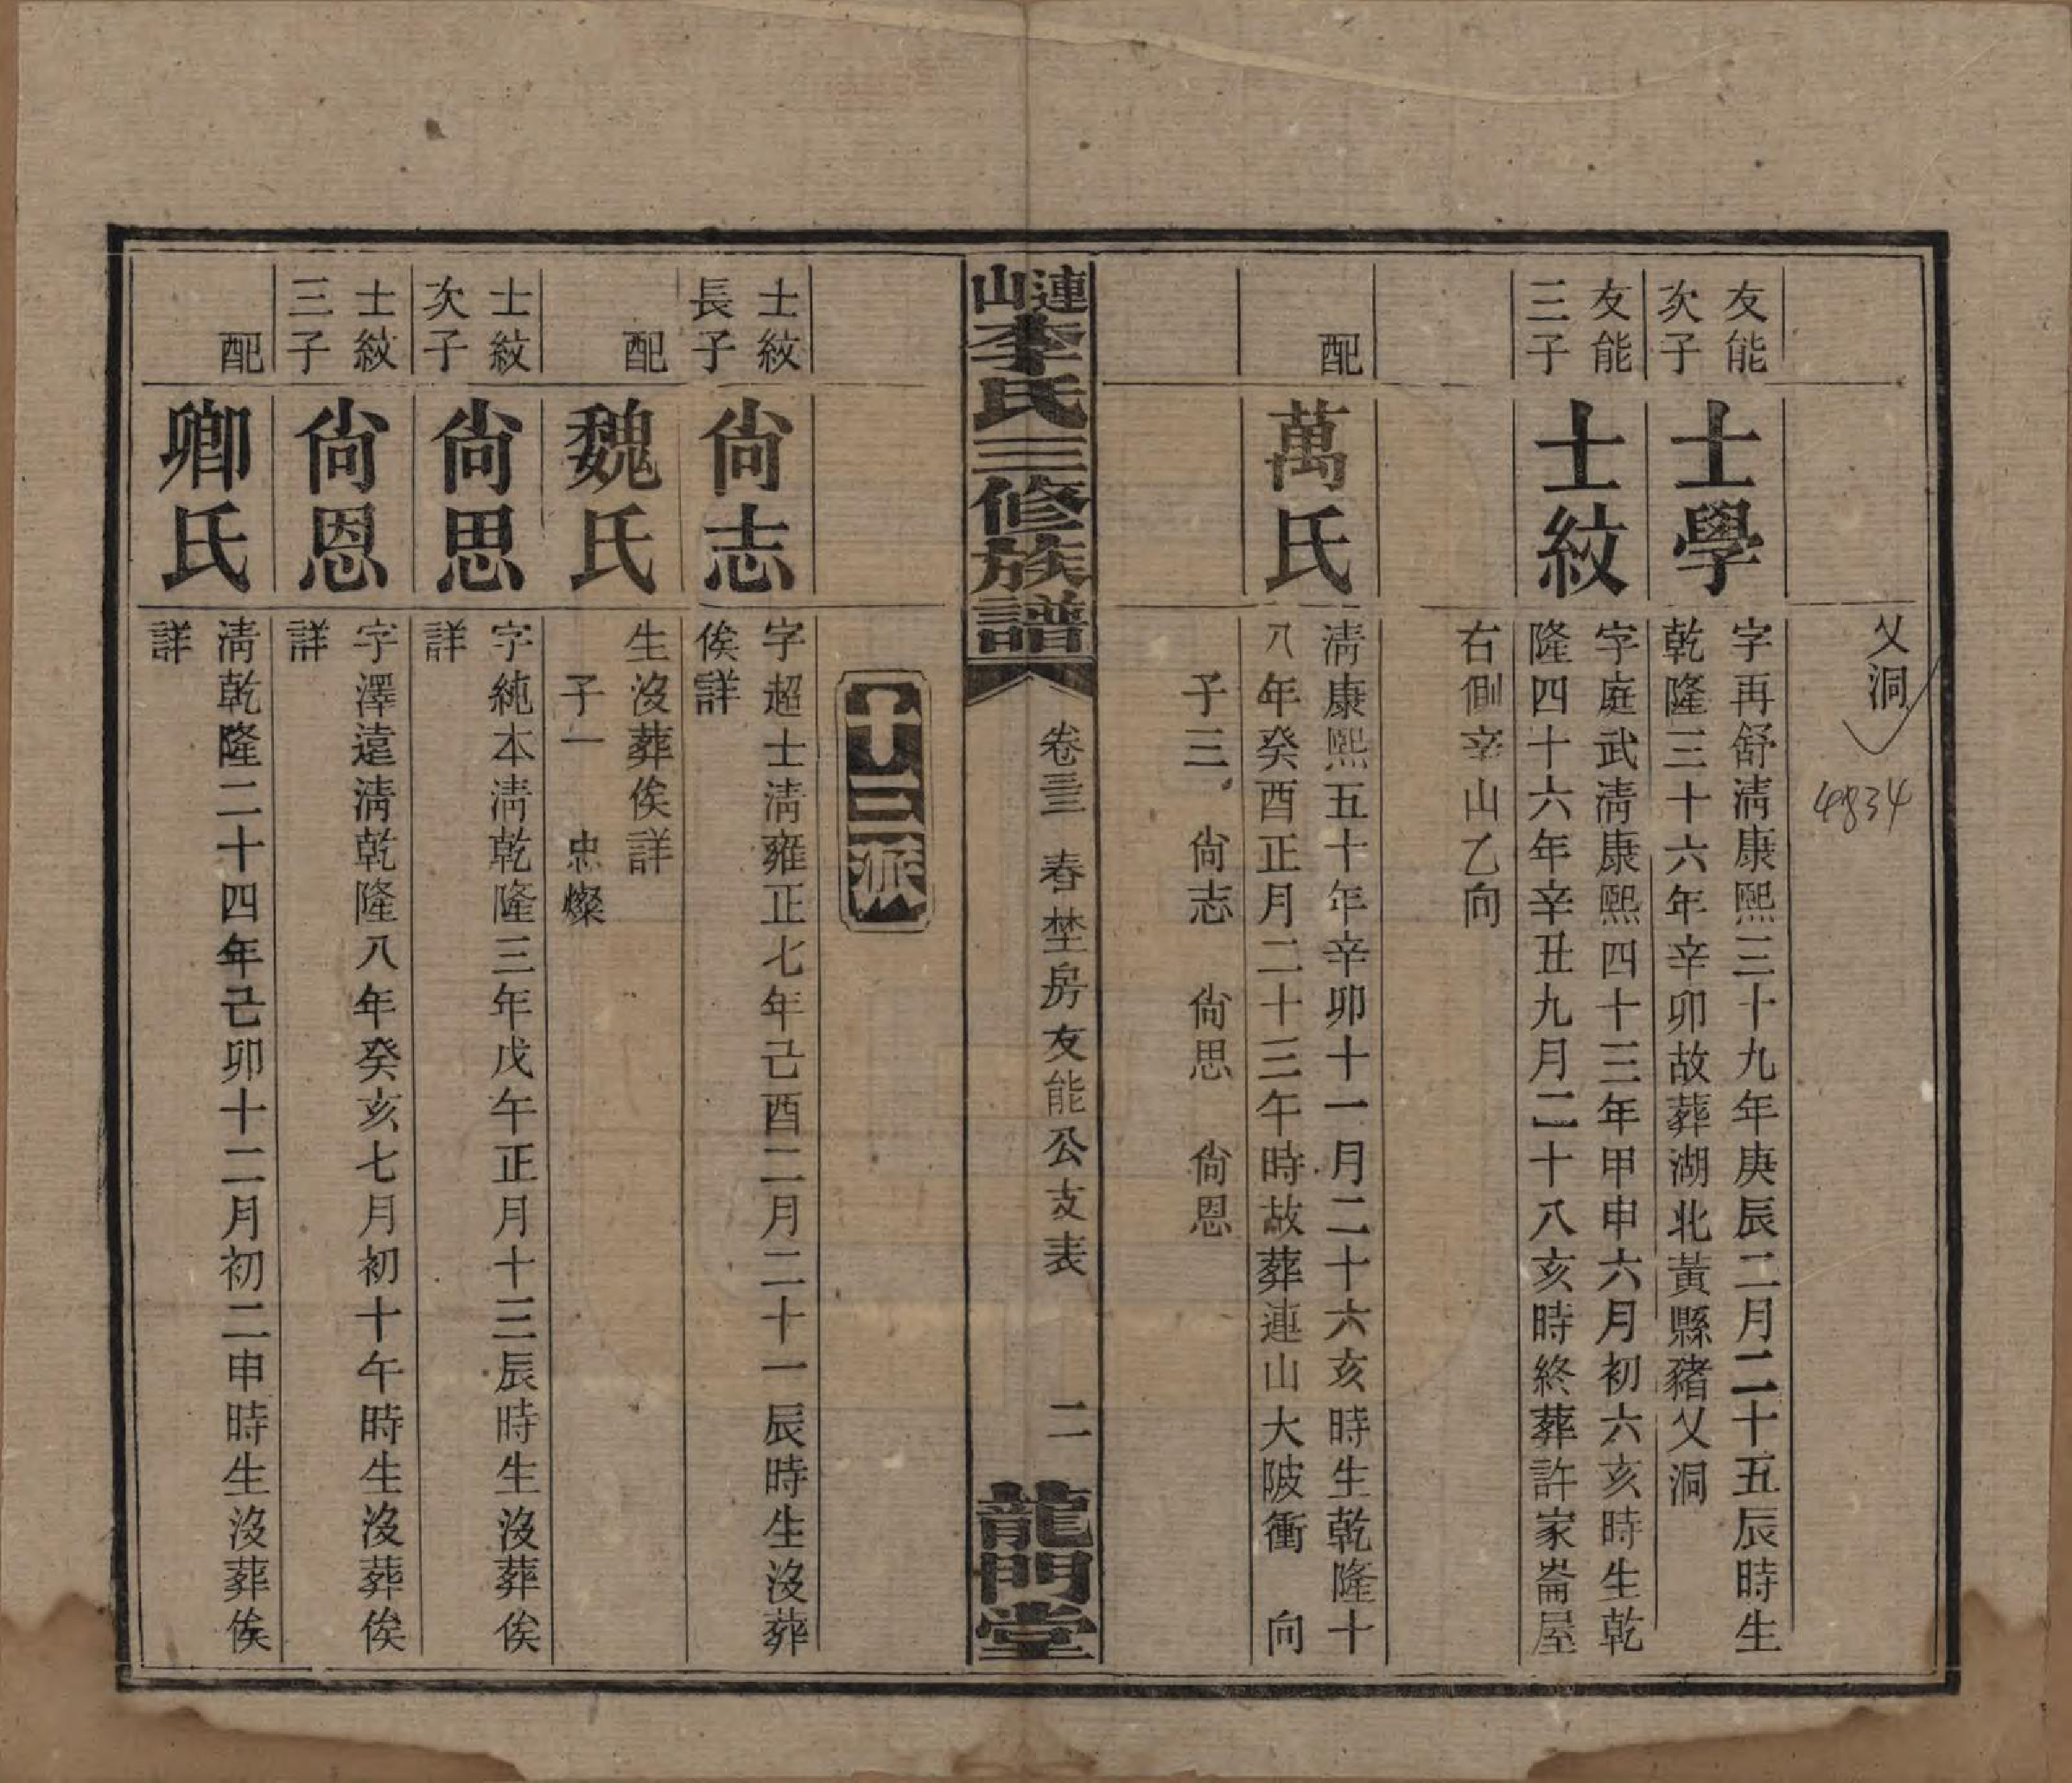 乂洞
4834
友能
次子
士學
字再舒淸康熙三十九年庚辰二月二十五辰時生
乾隆三十六年辛卯故葬湖北黃縣豬乂洞
友能
三子
士紋
字庭武淸康熙四十三年甲申六月初六亥時生乾
隆四十六年辛丑九月二十八亥時終葬許家崙屋
右側辛山乙向
配
萬氏
淸康熙五十年辛卯十一月二十六亥時生乾隆十
八年癸酉正月二十三午時故葬連山大陂衝 向
子三 尙志 尙思 尙恩
連山李氏三修族譜
卷三三 春埜房友能公支表 二
龍門堂
十三派
士紋
長子
尙志
字超士淸雍正七年己酉二月二十一辰時生沒葬
俟詳
配
魏氏
生沒葬俟詳
子一 忠燦
士紋
次子
尙思
字純本淸乾隆三年戊午正月十三辰時生沒葬俟
詳
士紋
三子
尙恩
字澤遠淸乾隆八年癸亥七月初十午時生沒葬俟
詳
配
卿氏
淸乾隆二十四年己卯十二月初二申時生沒葬俟
詳